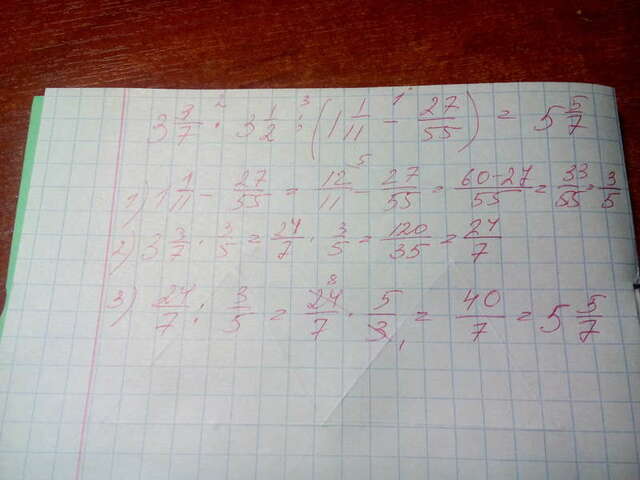 3 3/7 · 3 1/2 : (1 1/11 − 27/55) = 5 5/7
1) 1 1/11 − 27/55 = 12/11 − 27/55 = 60−27/55 = 33/55 = 3/5
2) 3 3/7 · 3/5 = 24/7 · 3/5 = 120/35 = 24/7
3) 24/7 : 3/5 = 24/7 · 5/3 = 40/7 = 5 5/7